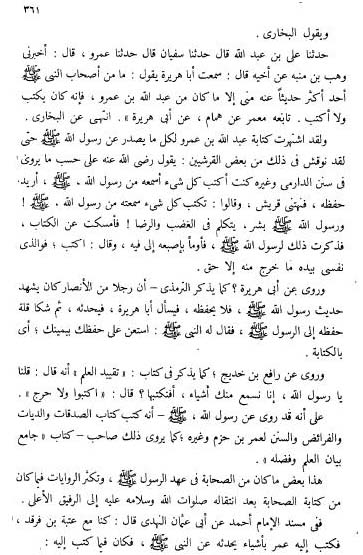 ٣٦١
ويقول البخارى .
حدثنا على بن عبد الله قال حدثنا سفيان قال حدثنا عمرو ، قال : أخبرنى
وهب بن منبه عن أخيه قال : سمعت أبا هريرة يقول : ما من أصحاب النبى ﷺ
أحد أكثر حديثاً عنه منى إلا ما كان من عبد الله بن عمرو ، فإنه كان يكتب
ولا أكتب . تابعه معمر عن همام ، عن أبى هريرة » . انتهى عن البخارى .
ولقد اشتهرت كتابة عبد الله بن عمرو لكل ما يصدر عن رسول الله ﷺ حتى
لقد نوقش فى ذلك من بعض القرشيين : يقول رضى الله عنه على حسب ما يروى
فى سنن الدارمى وغيره كنت أكتب كل شىء أسمعه من رسول الله ، ﷺ ، أريد
حفظه ، فنهتنى قريش ، وقالوا : تكتب كل شىء سمعته من رسول الله . ﷺ !
ورسول الله ﷺ بشر . يتكلم فى الغضب والرضا ! فأمسكت عن الكتاب ،
فذكرت ذلك لرسول الله ﷺ ، فأومأ بإصبعه إلى فيه ، وقال : اكتب ؛ فوالذى
نفسى بيده ما خرج منه إلا حق .
وروى عن أبى هريرة ؟ كما يذكر الترمذى – أن رجلا من الأنصار كان يشهد
حديث رسول الله ﷺ ، فلا يحفظه ، فيسأل أبا هريرة ، فيحدثه ، ثم شكا قلة
حفظه إلى الرسول ﷺ ، فقال له النبى ﷺ : استعن على حفظك بيمينك ؛ أى
بالكتابة .
وروى عن رافع بن خديج ؛ كما يذكر فى كتاب : « تقييد العلم » أنه قال : قلنا
يا رسول الله ، إنا نسمع منك أشياء ، أفنكتبها ؟ قال : « اكتبوا ولا حرج » .
على أنه قد روى عن رسول الله ، ﷺ – أنه كتب كتاب الصدقات والديات
والفرائض والسنن لعمر بن حزم وغيره ؛ كما يروى ذلك صاحب – كتاب « جامع
بيان العلم وفضله » .
هذا بعض ما كان من الصحابة فى عهد الرسول ﷺ ، وتكثر الروايات فيما كان
من كتابة الصحابة بعد انتقاله صلوات الله وسلامه عليه إلى الرفيق الأعلى .
فنى مسند الإمام أحمد عن أبى عثمان النهدى قال : كنا مع عتبة بن فرقد ،
فكتب إليه عمر بأشياء يحدثه عن النبى ﷺ ، فكان فيما كتب إليه :